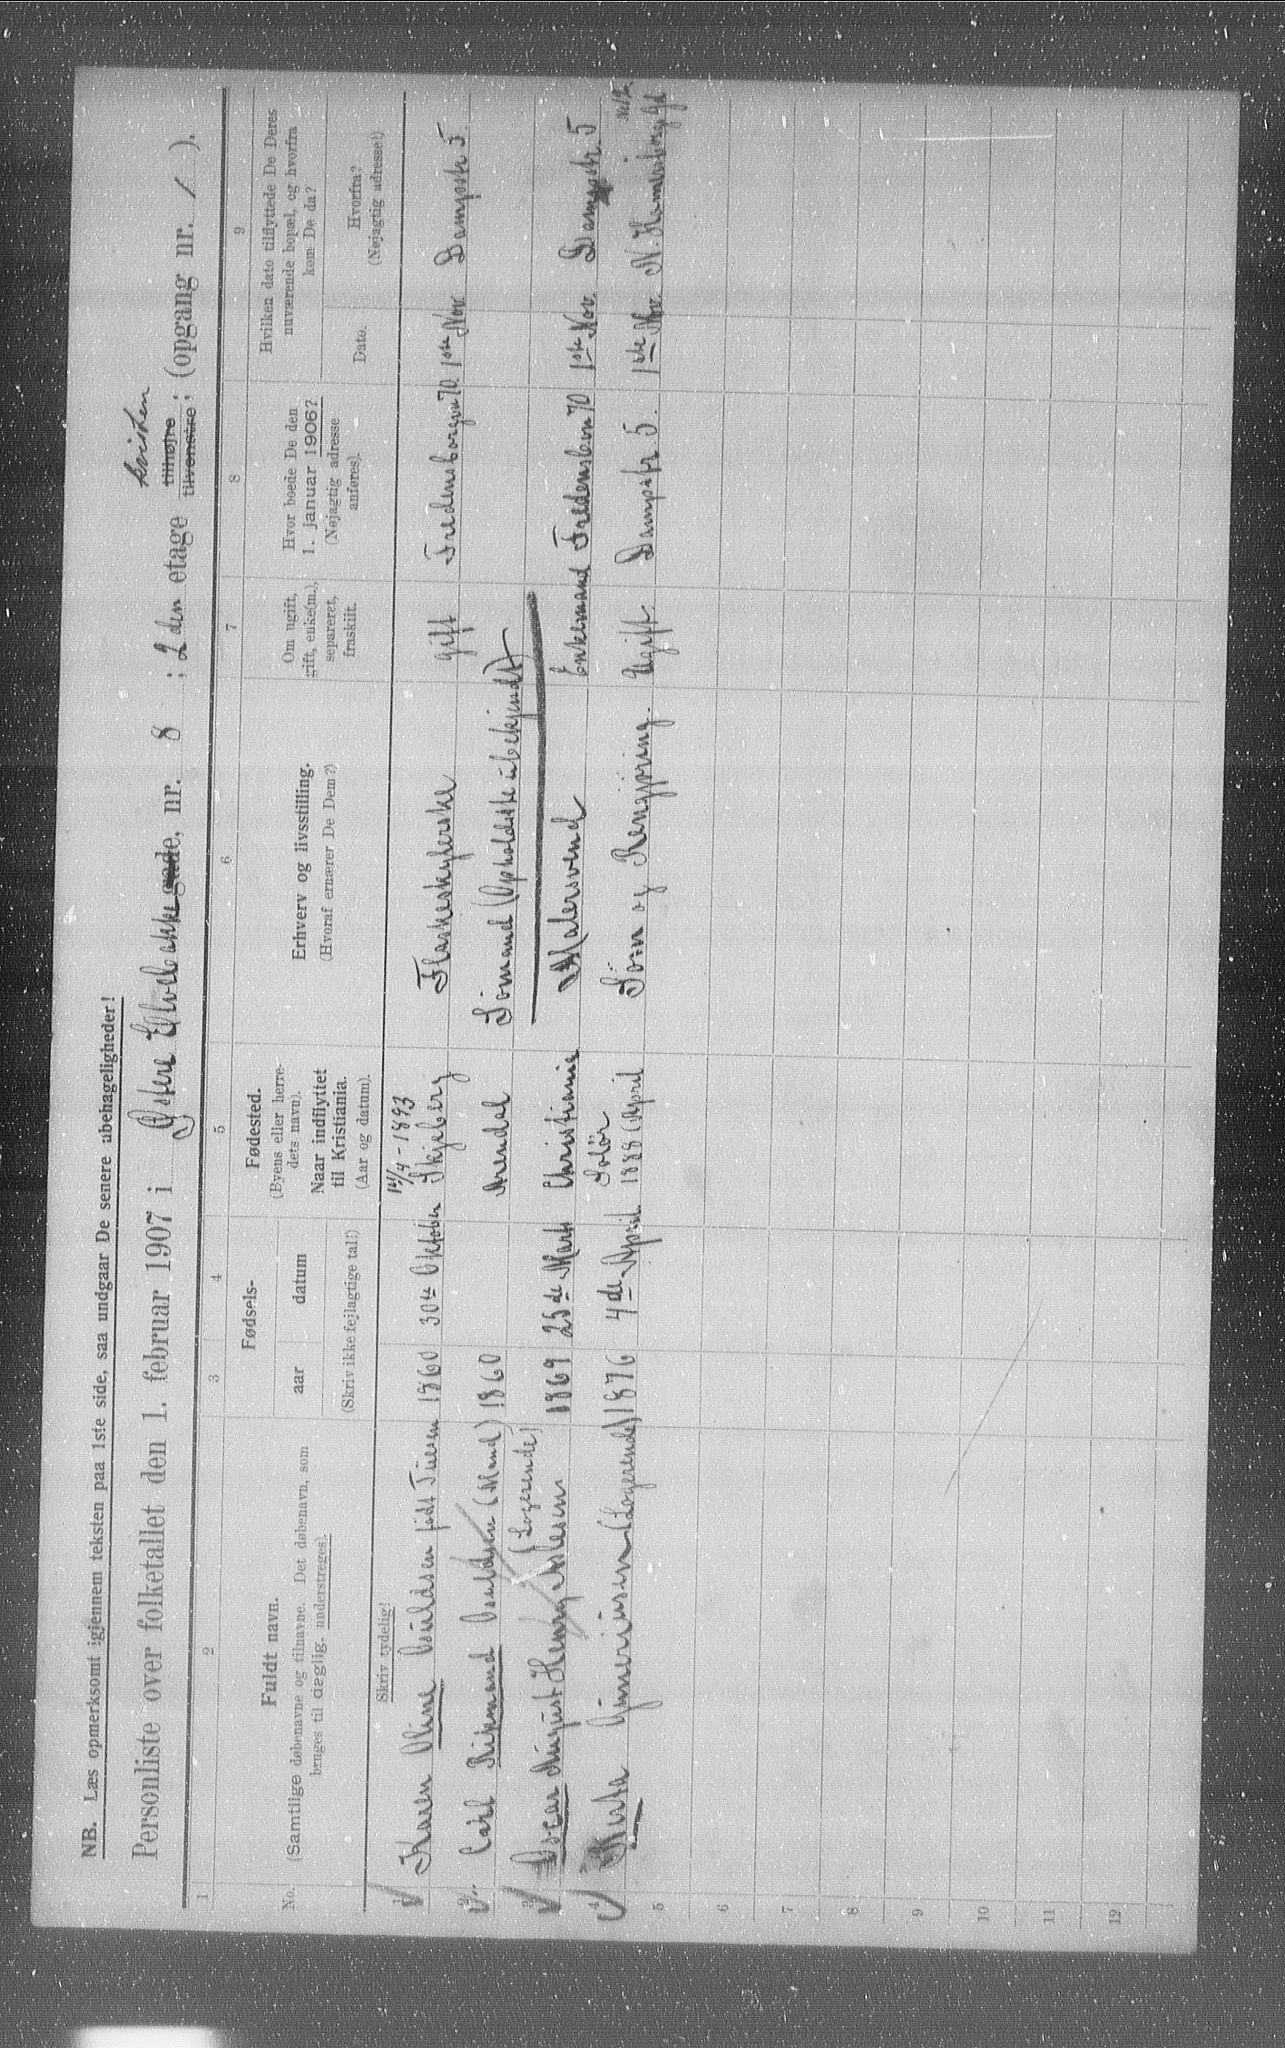 NB. Læs opmerksomt igjennem teksten paa 1ste side, saa undgaar De senere ubehageligheder!
Personliste over folketallet den 1. februar 1907 i Østere Elvebakke gade, nr. 8 ; 2den etage tilhøjre tilvenstre kvisten ; (opgang nr. / ).
1 2 3 4 5 6 7 8 9
No.
Fuldt navn.
(Samtlige døbenavne og tilnavne. Det døbenavn, som
bruges til daglig, understreges).
Skriv tydelig!
Fødsels-
aar datum
(Skriv ikke fejlagtige tal!)
Fødested.
(Byens eller herre-
dets navn).
Naar indflyttet
til Kristiania.
(Aar og datum).
Erhverv og livsstilling.
(Hvoraf ernærer De Dem?)
Om ugift,
gift, enke(m.),
separeret,
fraskilt.
Hvor boede De den
1. januar 1906?
(Nøjagtig adresse
anføres).
Hvilken dato tilflyttede De Deres
nuværende bopæl, og hvorfra
kom De da?
Dato.
Hvorfra?
(Nøjagtig adresse!)
14/4 - 1893
1 Karen Oline Osuldsen født 1860 30te Oktober Skjeberg Flaskeskyllerske gift Fredensborgvn 70 1ste Nov. Dampstr 5.
2 Carl Osuldsen (Mand) 1860 Arendal Sømand (Opholdsste ubekjendt)
(Logerende)
3 Oscar August Henry Aslesen 1869 25de Marts Christiania Malersvend Enkemand Fredensb vn 70 1ste Nov. Dampstr. 5
Solør
4 (Logerende) 1876 4de April 1888 (April Søm og Rengjøring. Ugift. Dampstr. 5. 1ste Nov. N. Hammersborg gd
No 12
5
6
7
8
9
10
11
12